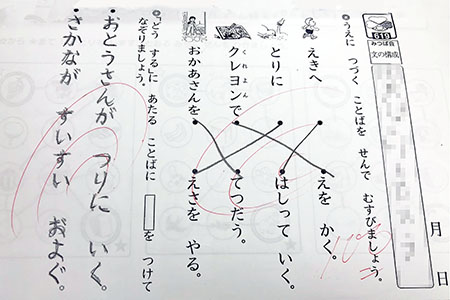 619
文の構成
月 日
うえに つづく ことばを せんで むすびましょう。
100
えきへ ・ ・ えを かく。
とりに ・ ・ はしって いく。
くれよん
クレヨンで ・ ・ てつだう。
おかあさんを ・ ・ えさを やる。
どう するに あたる ことばに を つけて
なぞりましょう。
・おとうさんが つりに いく。
・さかなが すいすい およぐ。